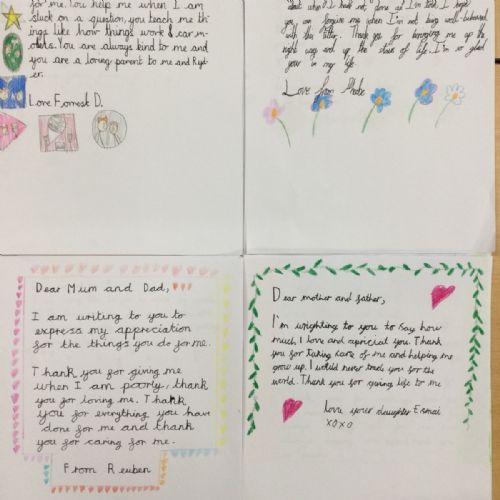 for me. You help me when I am
stuck on a question, you teach me th
ings like how things work & car m-
odels. You are always kind to me and
you are a loving parent to me and Ryd-
er.
Love Forrest D.
you can forgive me when I'm not being well-behaved
with the sitter. Thank you for bringing me up the
right way and up the stairs of life. I'm so glad
your in my life.
Love from Phoebe
Dear Mum and Dad,
I am writing to you to
express my appreciation
for the things you do for me.
Thank you for giving me
when I am poorly. thank
you for loving me. Thank
you for everything you have
done for me and thank
you for caring for me.
From Reuben
Dear mother and father,
I'm wrighting to you to say how
much I love and apriciat you. Thank
you for taking care of me and helping me
grow up. I would never trad you for the
world. Thank you for giving life to me
Love your daughter Esmai
xoxo